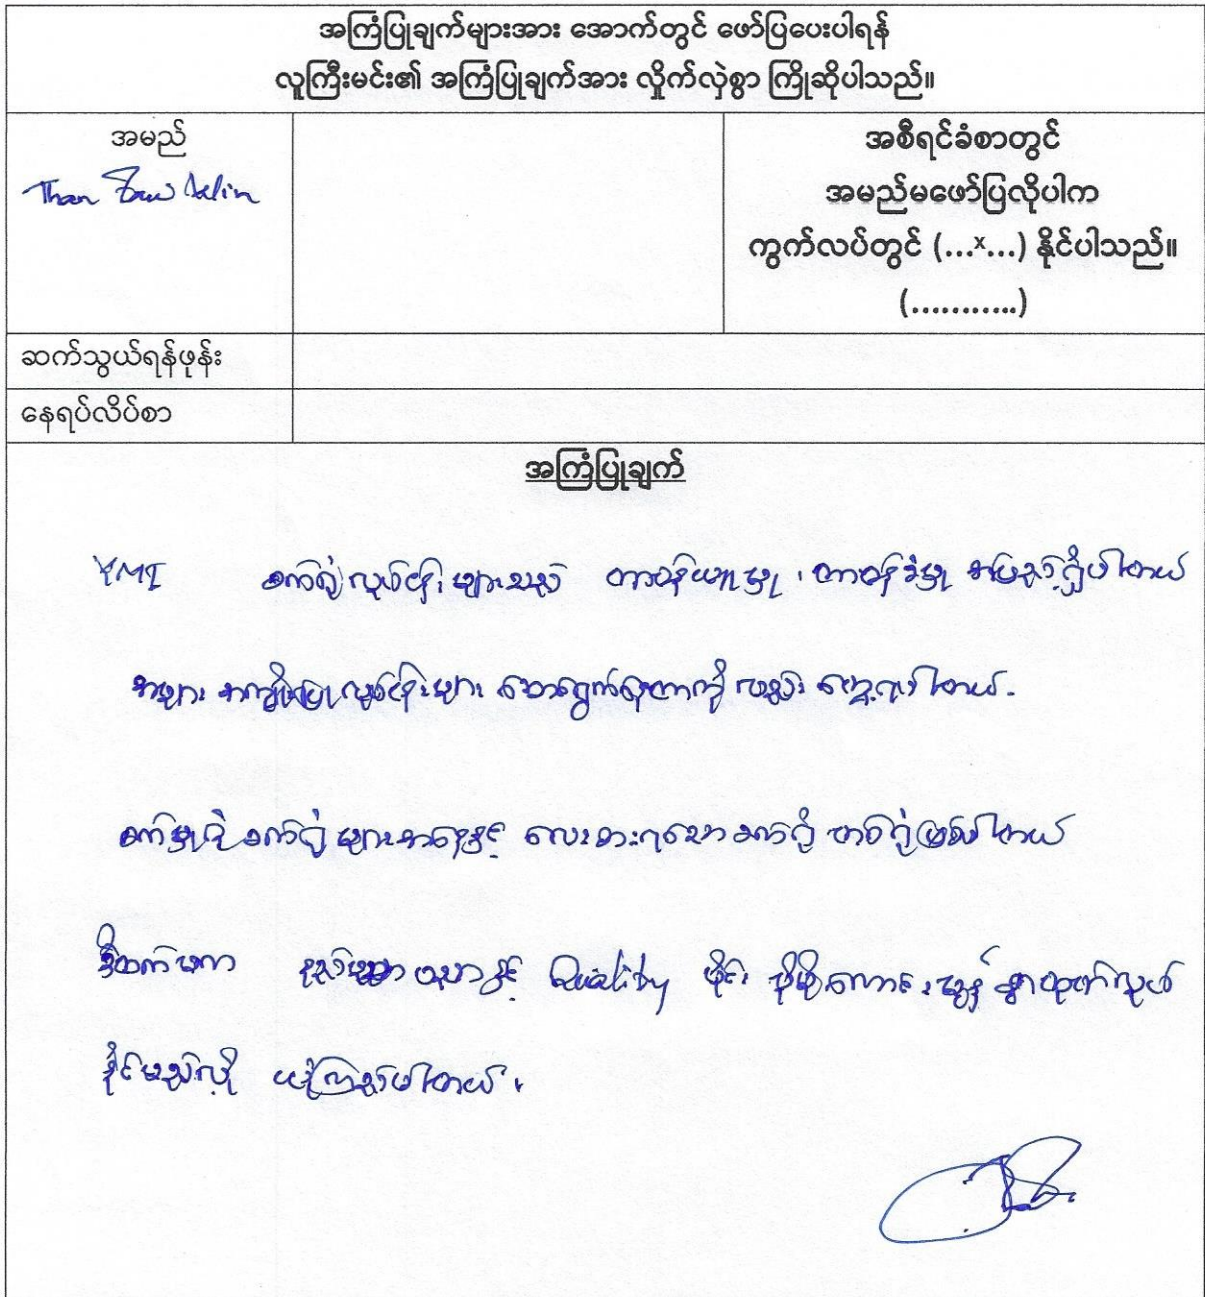 အကြံပြုချက်များအား အောက်တွင် ဖော်ပြပေးပါရန်
လူကြီးမင်း၏ အကြံပြုချက်အား လှိုက်လှဲစွာ ကြိုဆိုပါသည်။
အမည်
Than Zaw
အစီရင်ခံစာတွင်
အမည်မဖော်ပြလိုပါက
ကွက်လပ်တွင် (...x...) နိုင်ပါသည်။
(...........)
ဆက်သွယ်ရန်ဖုန်း
နေရပ်လိပ်စာ
အကြံပြုချက်
စက်ရုံလုပ်ငန်းများသည် တာဝန်ယူမှု ၊ တာဝန်ခံမှု အပြည့်ရှိပါတယ်
အများ အကျိုးပြုလုပ်ငန်းများ ဆောင်ရွက်နေတာကို လည်း တွေ့ရပါတယ်.
စက်မှုဇုံ စက်ရုံများအနေနှင့် လေးစားရသော စက်ရုံ တစ်ရုံဖြစ်ပါတယ်
ဒီထက်မက နည်းပညာနှင့် Quality ပိုင်း ပိုမိုကောင်းမွန်စွာထုတ်လုပ်
နိုင်မည်လို့ ယုံကြည်ပါတယ် ၊